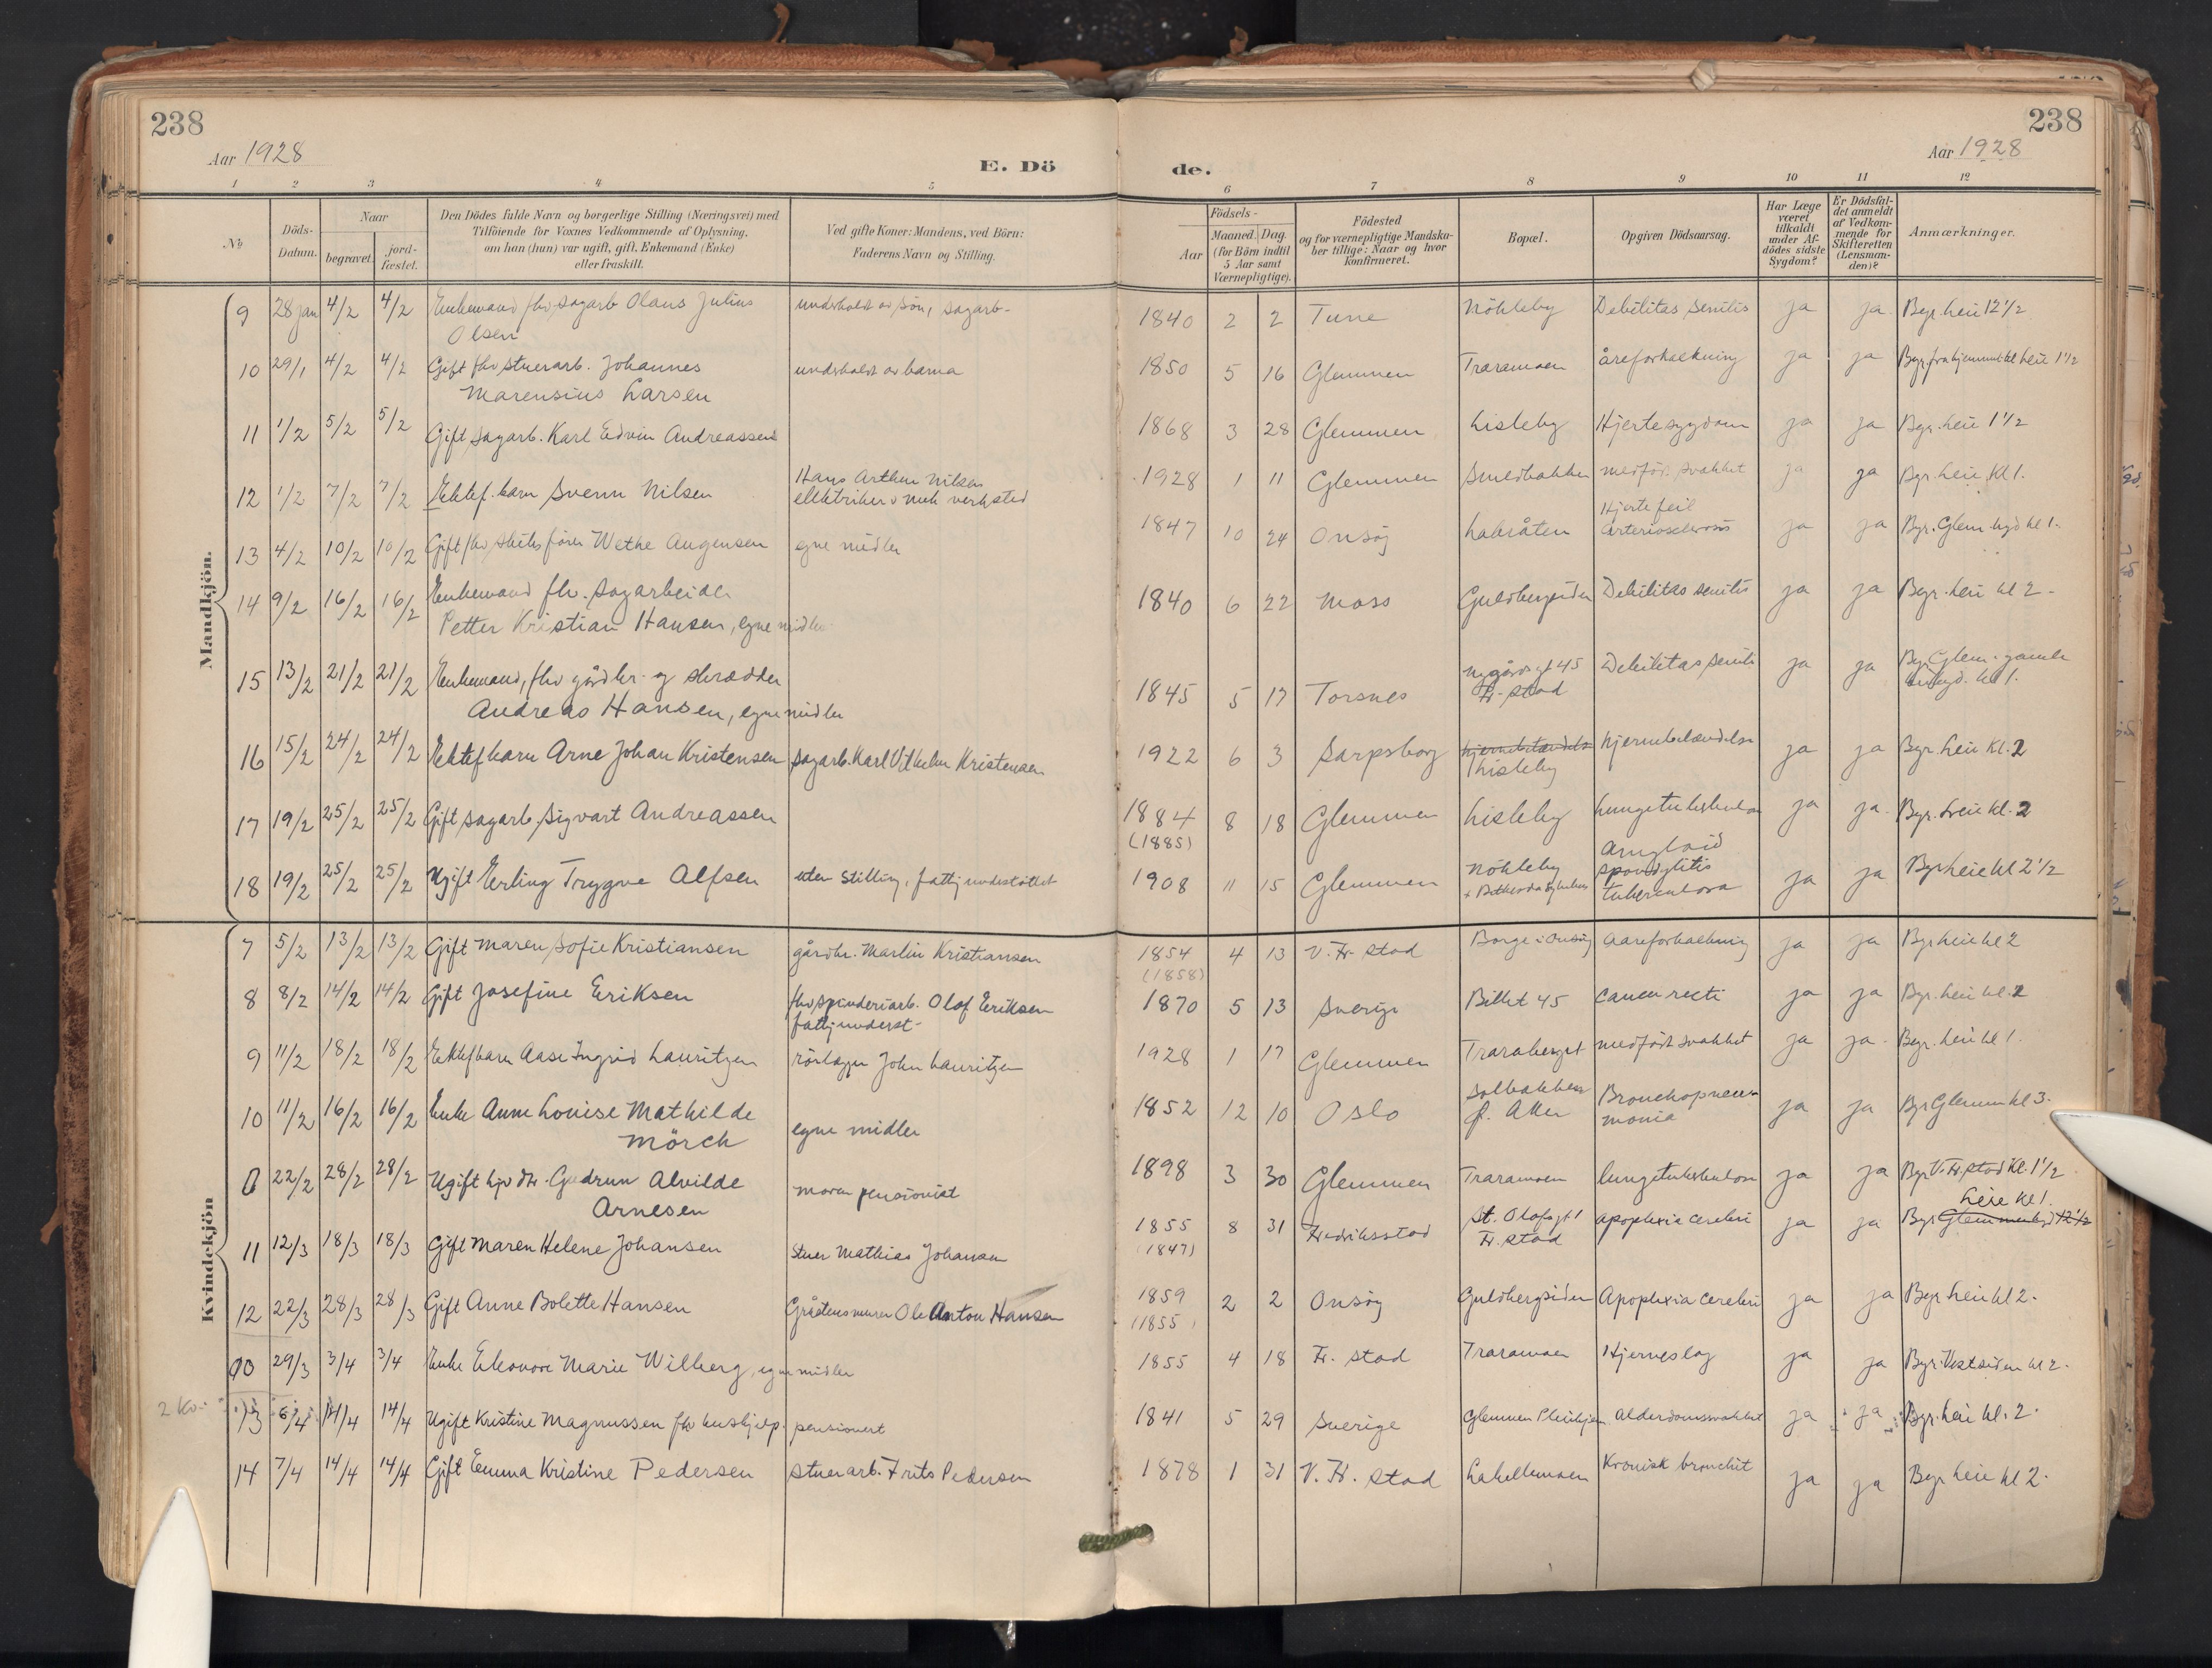 238
Aar 1928
E. Dö
de.
238
Aar 1928
1 2 3 4 5 6 7 8 9 10 11 12
No
Döds-Datum.
Naar
begravet.
jord-fæstet.
Den Dödes fulde Navn og borgerlige Stilling (Næringsvei) med
Tilföiende for Voxnes Vedkommende af Oplysning,
om han (hun) var ugift, gift, Enkemand (Enke)
eller fraskilt.
Ved gifte Koner: Mandens, ved Börn:
Faderens Navn og Stilling.
Födsels-
Aar
Maaned. Dag
(for Börn indtil
5 Aar samt
Værnepligtige).
Födested
og for værnepligtige Mandska-
ber tillige: Naar og hvor
konfirmeret.
Bopæl.
Opgiven Dödsaarsag.
Har Læge
været
tilkaldt
under Af-
dödes sidste
Sygdom?
Er Dödsfal-
det anmeldt
af Vedkom-
mende for
Skifteretten
(Lensman-
den)?
Anmærkninger.
Mandkjön.
9 28 jan 4/2 4/2 Enkemand fhv sagarb Olaus Julius underholdt av sön, sagarb- 1840 2 2 Tune Nökleby Debilitas senilis ja ja Bgr. Leie 12 1/2
Olsen
10 29/1 4/2 4/2 Gift fhv stuerarb. Johannes underholdt av barna 1850 5 16 Glemmen Traramoen åreforkalkning ja ja Bgr. fra hjemmet kl Leie 1 1/2
Marensius Larsen
11 1/2 5/2 5/2 Gift sagarb. Karl Edvin Andreassen 1868 3 28 Glemmen Lisleby Hjertesygdom ja ja Bgr. Leie 1 1/2
12 1/2 7/2 7/2 Ektef. barn Svenn Nilsen Hans Arthur Nilsen 1928 1 11 Glemmen Smedbakken medfød. svakhet ja ja Bgr. Leie kl 1.
elektriker v mek verksted
Hjertefeil
13 4/2 10/2 10/2 Gift fhv skibsförer Wethe Augensen egne midler 1847 10 24 Onsöy Labråten Arteriosclerosis ja ja Bgr. Glem. kgd kl 1.
14 9/2 16/2 16/2 Enkemand fhv. sagarbeider 1840 6 22 Moss Guldbergsiden Debilitas senilis ja ja Bgr. Leie kl 2.
Petter Kristian Hansen, egne midler
15 13/2 21/2 21/2 Enkemand, fhv gårdbr. og skrædder 1845 5 17 Torsnes Nygårdsgt 45 Debilitas senilis ja ja Bgr Glem. gamle
Andreas Hansen, egne midler Fr. stad kl 1.
16 15/2 24/2 24/2 Ektef barn Arne Johan Kristensen sagarb. Karl Vilhelm Kristensen 1922 6 3 Sarpsborg hjernebetændelse hjernebetændelse ja ja Bgr. Leie Kl. 2
Lisleby
17 19/2 25/2 25/2 Gift sagarb. Sigvart Andreassen 1884 8 18 Glemmen Lisleby Lungetuberkulose ja ja Bgr. Leie kl. 2
(1885)
Amyloid
18 19/2 25/2 25/2 Ugift Erling Trygve Alfsen uten stilling, fattigunderstöttet 1908 11 15 Glemmen Nökleby spondylitis ja ja Bgr Leie kl 2 1/2
tuberculosa
Kvindekjön
7 5/2 13/2 13/2 Gift Maren Sofie Kristiansen gårdbr. Martin Kristiansen 1854 4 13 V. Fr. stad Borge i Onsöy Aareforkalkning ja ja Bgr Leie kl 2
(1858)
8 8/2 14/2 14/2 Gift Josefine Eriksen fhv spinderiarb. Olof Eriksen 1870 5 13 Sverige Billet 45 cancer recti ja ja Bgr. Leie kl. 2
fattigunderst.
9 11/2 18/2 18/2 Ektef barn Aase Ingrid Lauritzen rörlægger John Lauritzen 1928 1 17 Glemmen Traraberget medfödt svakhet ja ja Bgr. Leie kl 1.
10 11/2 16/2 16/2 Enke Anne Louise Mathilde egne midler 1852 12 10 Oslo Solbakken Bronchopneu- ja ja Bgr Glemmen kl 3.
Mörch f. Aker monia
0 22/2 28/2 28/2 Ugift hjv dtr. Gudrun Alvilde moren pensionist 1898 3 30 Glemmen Traramoen lungetuberkulose ja ja Bgr V. Fr. stad Kl. 1 1/2
Arnesen
Leie kl 1.
11 12/3 18/3 18/3 Gift Maren Helene Johansen Stuer Mathias Johansen 1855 8 31 Fredriksstad St. Olafsgt 1 apoplexia cerebri ja ja Bgr Glemmen kgd 12 1/2
(1847) Fr. stad
12 22/3 28/3 28/3 Gift Anne Bolette Hansen Gråstensmurer Ole Anton Hansen 1859 2 2 Onsöy Guldbergsiden Apoplexia cerebri ja ja Bgr Leie kl 2.
(1855)
00 29/3 3/4 3/4 Enke Eleonore Marie Wilberg, egne midler 1855 4 18 Fr. stad Traramoen Hjerneslag ja ja Bgr. Vestsiden kl 2.
13 6/4 14/4 14/4 Ugift Kristine Magnussen fhv hushjelp. pensionert 1841 5 29 Sverige Glemmen Pleiehjem Alderdomssvakhet ja ja Bgr. Leie kl. 2.
14 7/4 14/4 14/4 Gift Emma Kristine Pedersen stuerarb. Frits Pedersen 1878 1 31 V. Fr. stad Lahellemoen Kronisk bronchit ja ja Bgr Leie kl 2.